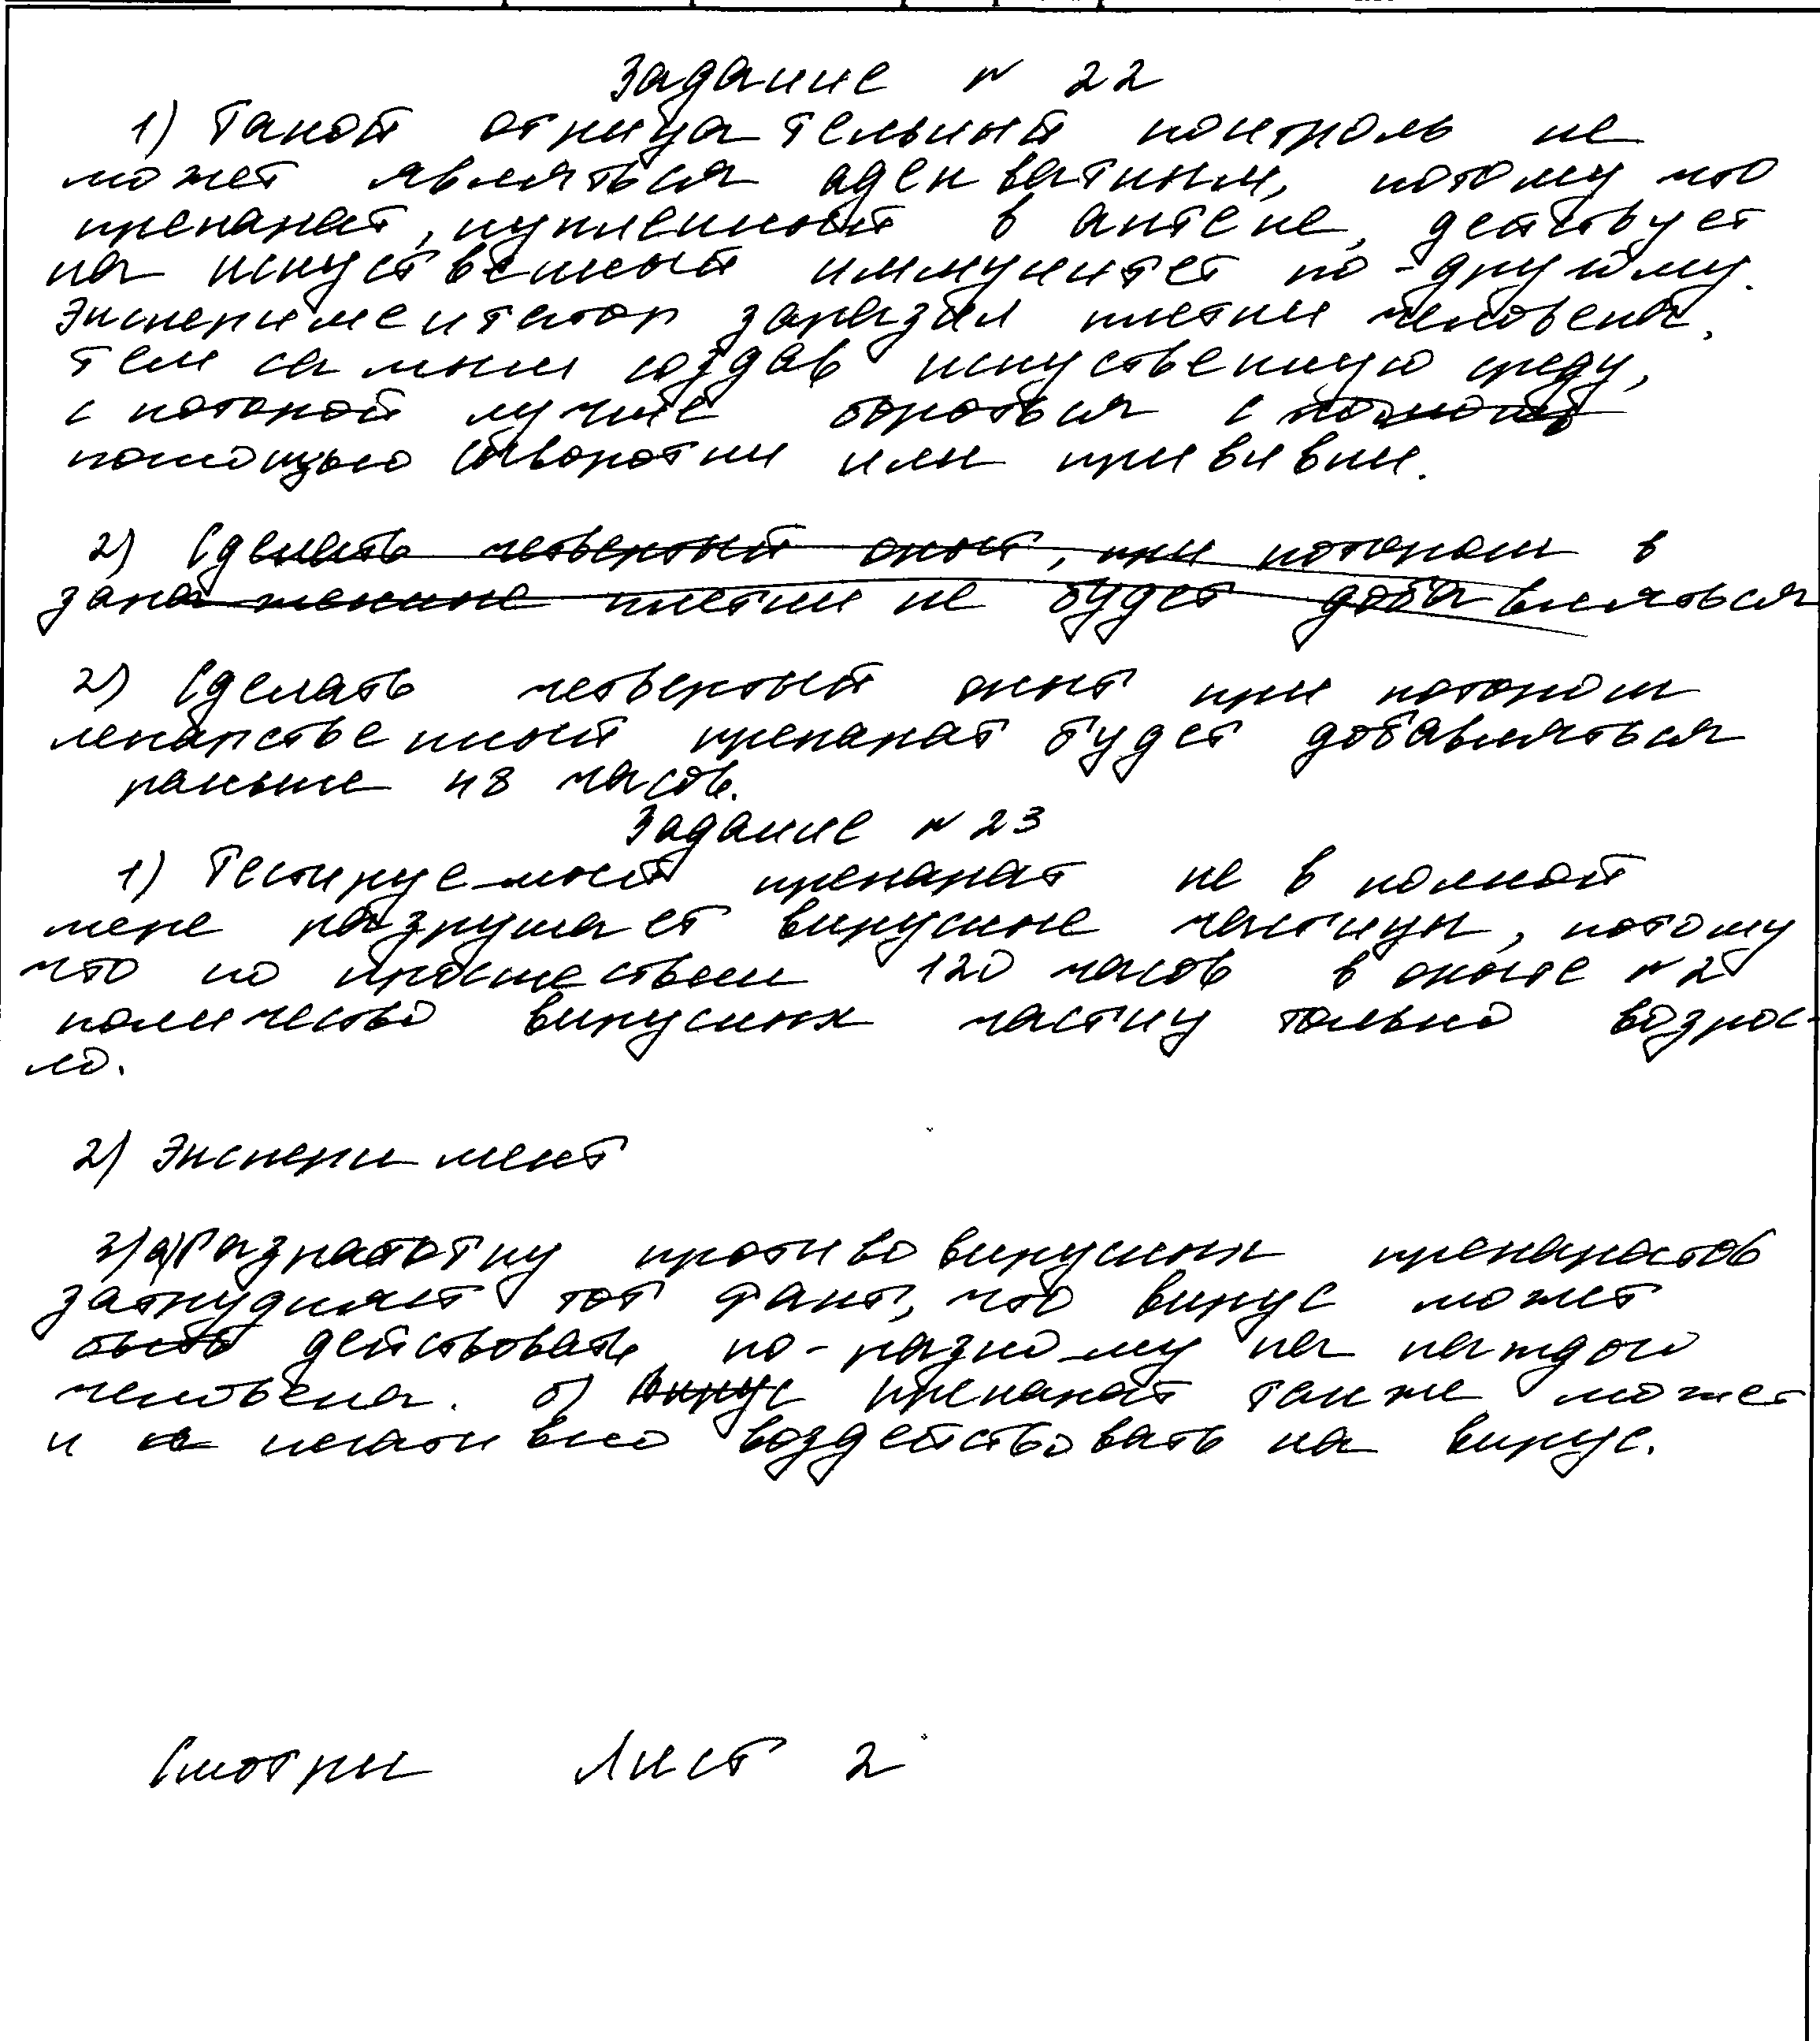 Задание № 22
1) Такой отрицательный контроль не
может являться адекватным, потому что
препарат, купленный в аптеке, действует
на искуственный иммунитет по-другому.
Экспериментатор заразил клетки человека,
тем самым создав искуственную среду,
с которой лучше бороться с
помощью сыворотки или прививки.
2) Сделать четвертый опыт, при котором в
зараженные клетки не будет добавляться
2) Сделать четвертый опыт при котором
лекарственный препарат будет добавляться
раньше 48 часов.
Задание № 23
1) Тестируемый препарат не в полной
мере разрушает вирусные частицы, потому
что по прошествии 120 часов в опыте № 2
количество вирусных частиц только возрос-
ло.
2) Эксперимент
3) а) Разработку противовирусных препаратов
затрудняет тот факт, что вирус может
быть действовать по-разному на каждого
человека. б) Вирус препарат также может
и не негативно воздействовать на вирус.
Смотри Лист 2